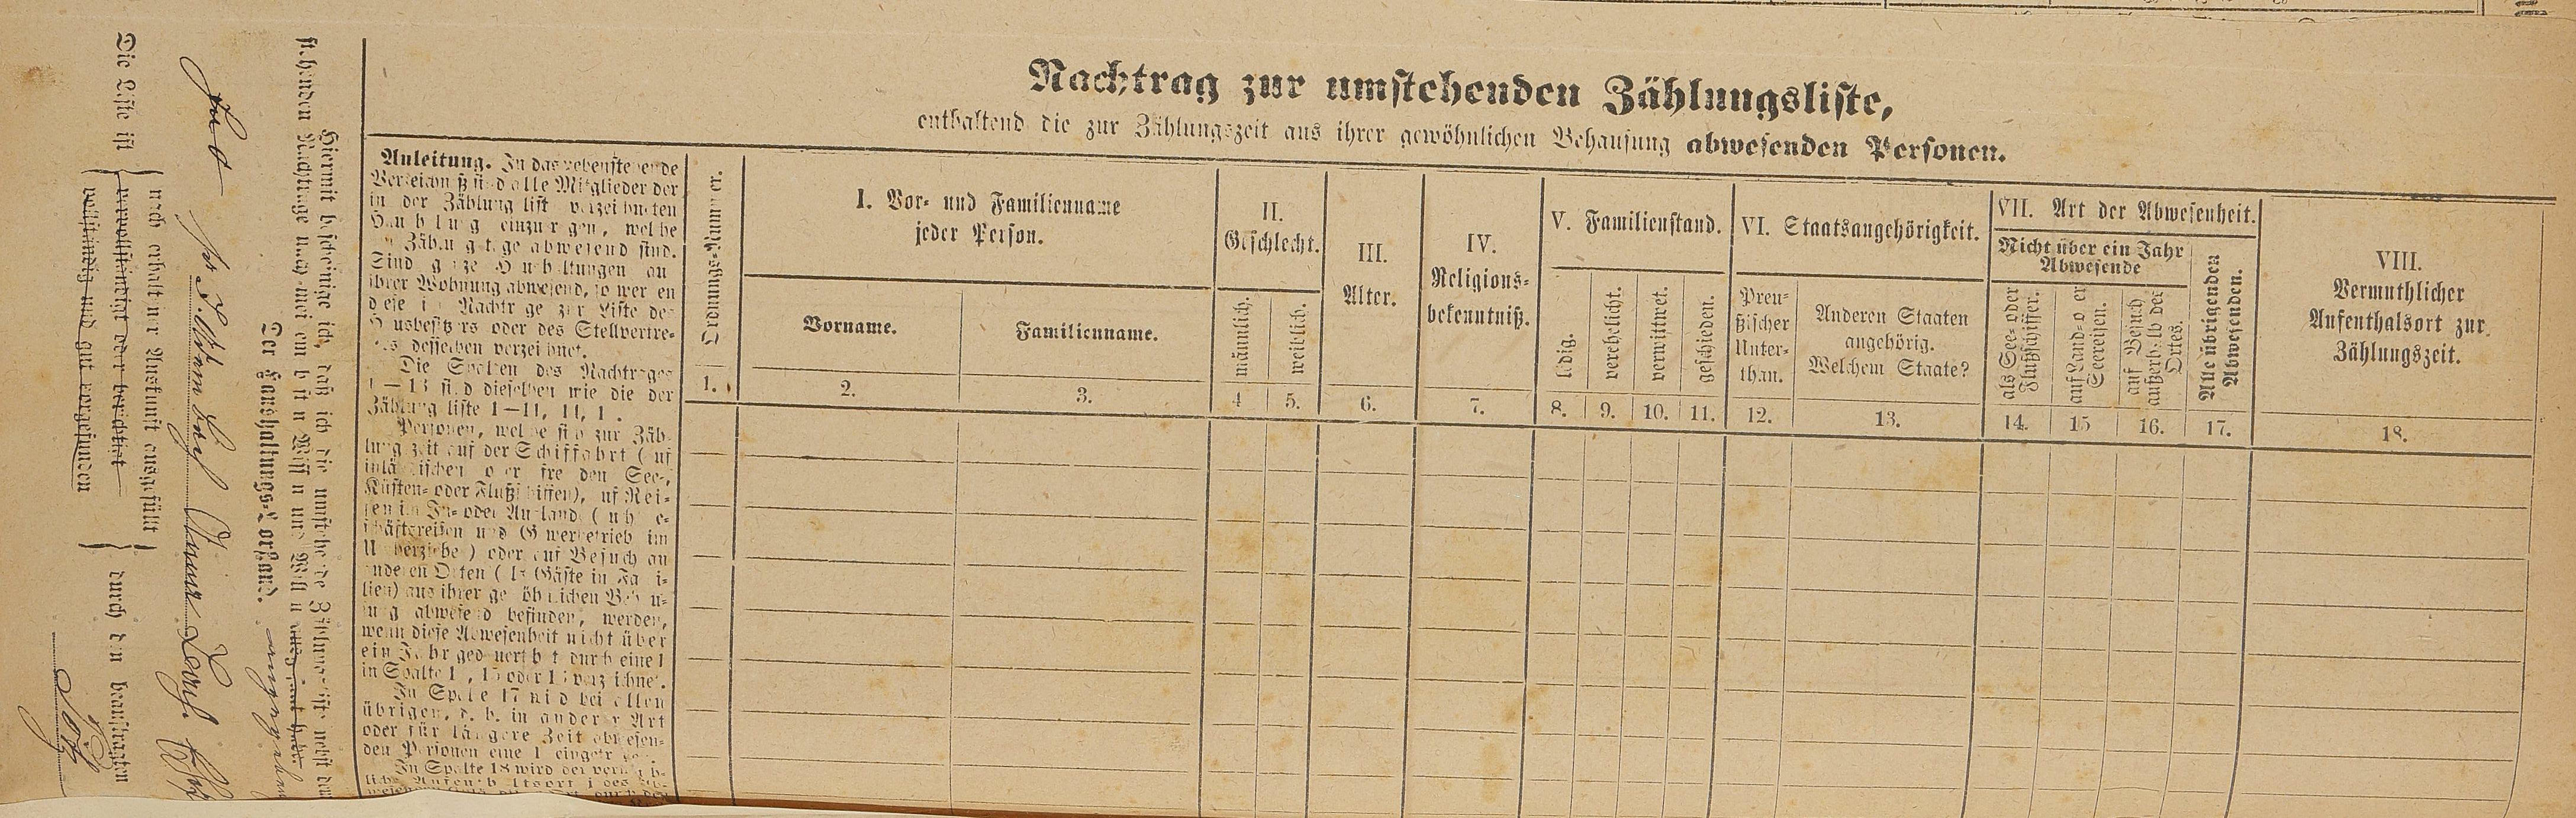 Nachtrag zur umstehenden Zählungsliste,
enthaltend die zur Zählungszeit aus ihrer gewöhnlichen Behausung abwesenden Personen.
Anleitung. In das nebenstehende
Verzeichniß sind alle Mitglieder der
in der Zählungsliste verzeichneten
Haushaltung einzutragen, welche
am Zählungstage abwesend sind.
Sind ganze Haushaltungen aus
ihrer Wohnung abwesend, so werden
diese im Nachtrage zur Liste des
Hausbesitzers oder des Stellvertre-
ters desselben verzeichnet.
Die Spalten des Nachtrages
1—13 sind dieselben wie die der
Zählungsliste
Personen, welche sich zur Zäh-
lungszeit auf der Schiffahrt (auf
inländischen oder fremden See-,
Küsten- oder Flußschiffen), auf Rei-
sen im In- oder Auslande (auch Ge-
schäftsreisen und Gewerbetrieb im
Umherziehen) oder auf Besuch an
anderen Orten (als Gäste in Fami-
lien) aus ihrer gewöhnlichen Behau-
sung abwesend befinden, werden,
wenn diese Abwesenheit nicht über
ein Jahr gedauert hat durch eine 1
in Spalte 14, 15 oder 16 verzeichnet.
In Spalte 17 wird bei allen
übrigen, d. h. in anderer Art
oder für längere Zeit abwesen-
den Personen eine 1 eingetragen.
In Spalte 18 wird der vermuth-
liche Aufenthaltsort jedes Ab-
Ordnungs-Nummer.
1.
I. Vor- und Familienname
jeder Person.
Vorname.
2.
Familienname.
3.
II.
Geschlecht.
männlich.
4
weiblich.
5.
III.
Alter.
6.
IV.
Religions-
bekenntniß.
7.
V. Familienstand.
ledig.
8.
verehelicht.
9.
verwittwet.
10.
geschieden.
11.
VI. Staatsangehörigkeit.
Preu-
ßischer
Unter-
than.
12.
Anderen Staaten
angehörig.
Welchem Staate?
13.
VII. Art der Abwesenheit.
Nicht über ein Jahr
Abwesende
als See- oder
Flußschiffer.
14.
auf Land- oder
Seereisen.
15
auf Besuch
außerhalb des
Ortes.
16.
Alle übrigenden
Abwesenden.
17.
VIII.
Vermuthlicher
Aufenthalsort zur
Zählungszeit.
18.
Hiermit bescheinige ich, daß ich die umstehende Zählungsliste nebst dem
stehenden Nachtrage nach meinem besten Wissen und Willen
angegeben
Der Haushaltungs-Vorstand.
Die Liste ist
nach erhaltener Auskunft ausgefüllt
vervollständigt oder berichtigt
vollständig und gut vorgefunden
durch den beauftragten